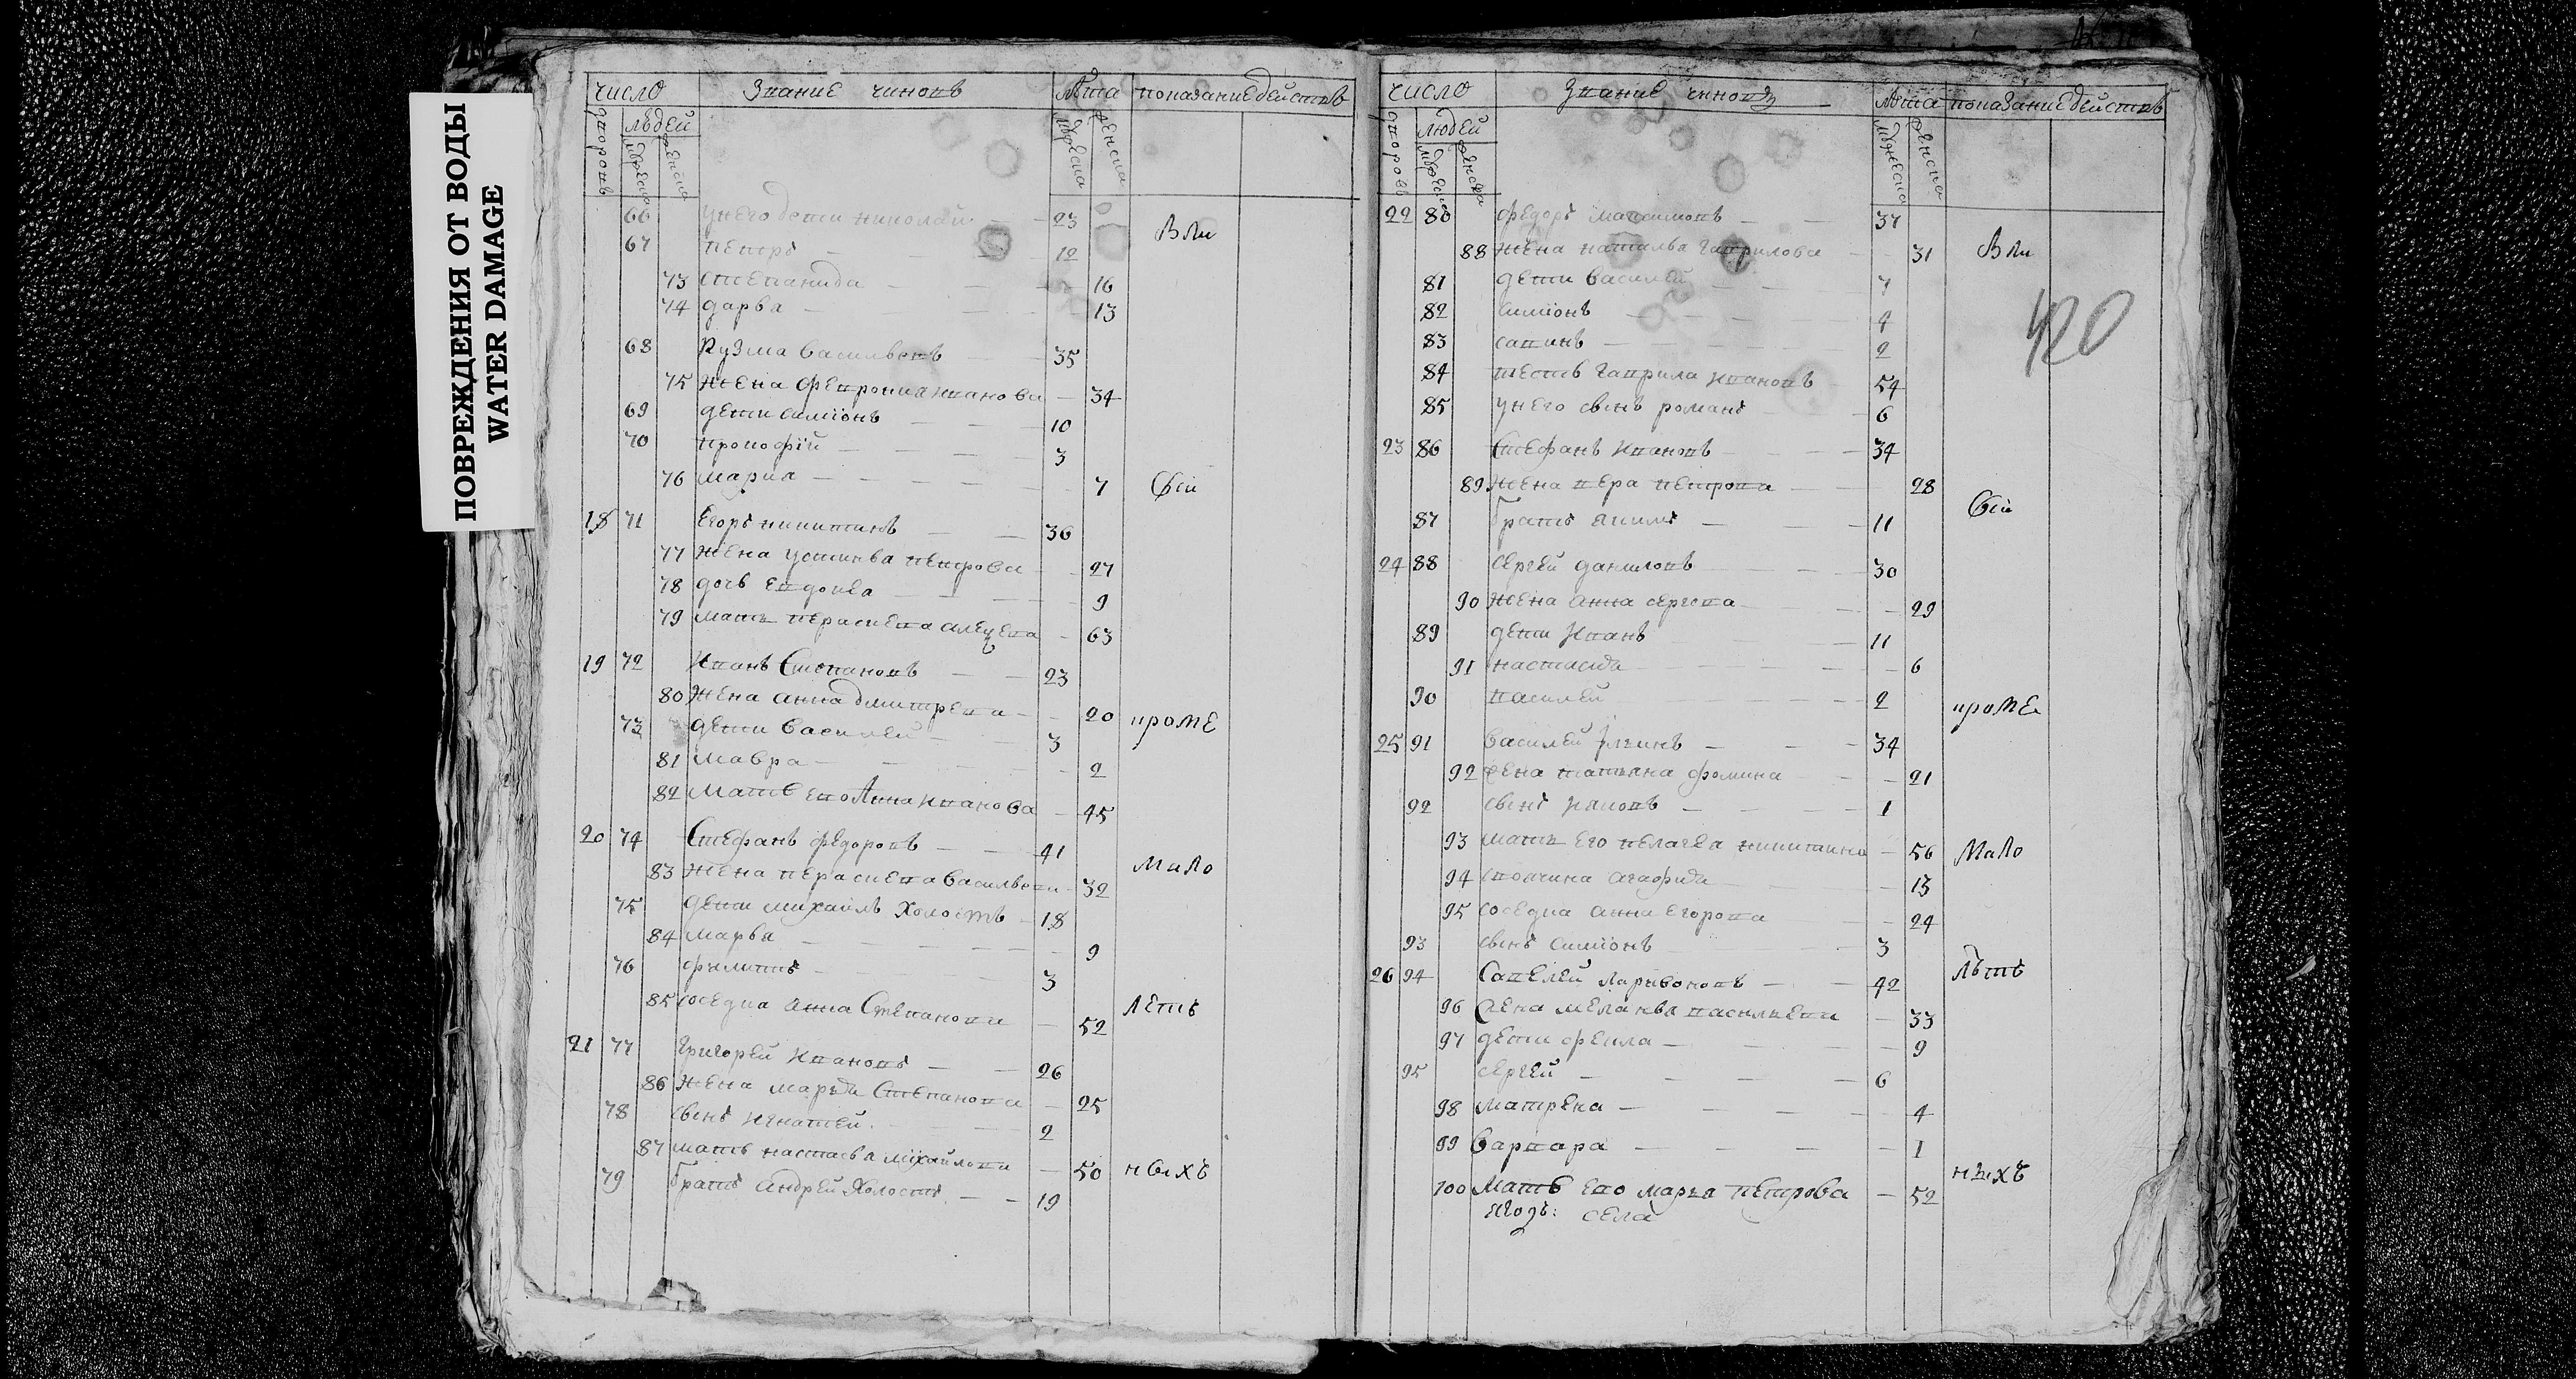 ПОВРЕЖДЕНИЯ ОТ ВОДЫ
WATER DAMAGE
число Звание чиновъ лѣта показание действъ
дворовъ людей мужеска женска мужеска женска
66 у него дети николай 23
67 петръ 12
73 степанида 16
74 дарья 13
68 Кузма Васильевъ 35
75 жена феврониа иванова 34
69 дети симïонъ 10
70 прокофïй 3
76 мария 7
18 71 Егоръ никитинъ 36
77 жена устинья петрова 27
78 дочь евдокея 9
79 мать парасковья 63
19 72 Иванъ Степановъ 23
80 жена анна дмитрева 20
73 дети василей 3
81 мавра 2
82 мать ево Анна иванова 45
20 74 Стефанъ федоровъ 41
83 жена парасковья васильева 32
75 дети михаилъ холостъ 18
84 марья 9
76 филиппъ 3
85 соседка анна Степанова 52
21 77 григорей ивановъ 26
86 жена марья Степанова 25
78 сынъ игнатей 2
87 мать настасья михайлова 50
79 братъ андрей холостъ 19
Вли
Сïи
кроме
мало
летъ
ныхъ
число Звание чиновъ лѣта показание действъ
дворовъ людей мужеска женска мужеска женска
420
22 80 федоръ максимовъ 37
88 жена наталья гаврилова 31
81 дети василей 7
82 симïонъ 4
83 савинъ 2
84 тесть гаврила ивановъ 54
85 у него сынъ романъ 6
23 86 Стефанъ ивановъ 34
89 жена вера петрова 28
87 братъ якимъ 11
24 88 сергей даниловъ 30
90 жена анна сергеева 29
89 дети иванъ 11
91 настасия 6
90 василей 2
25 91 василей 34
92 жена татьяна фомина 21
92 сынъ 1
93 мать его пелагея никитина 56
94 агафия 13
95 соседка анна егорова 24
93 сынъ симïонъ 3
26 94 Савелей ларивоновъ 42
96 жена меланья васильева 33
97 дети фекла 9
95 сергей 6
98 матрена 4
99 варвара 1
100 мать ево марья петрова 52
села
Вли
Сïи
кроме
мало
лѣтъ
ныхъ